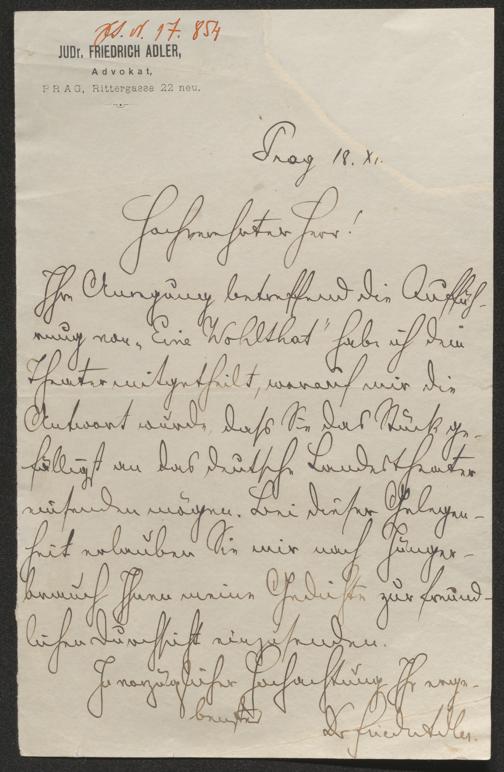 H. N. 17. 854
JUDr. FRIEDRICH ADLER,
Advokat,
PRAG, Rittergasse 22 neu.
Prag 18. XI.
Hochverehrter Herr!
Ihre Anregung betreffend die Auffüh-
rung von „Eine Wohlthat" habe ich dem
Theater mitgetheilt, worauf mir die
Antwort wurde, daß Sie das Stück ge-
fälligst an das deutsche Landestheater
einsenden mögen. Bei dieser Gelegen-
heit erlauben Sie mir nach Jünger-
brauch Ihnen meine Gedichte zur freund-
lichen Durchsicht einzusenden.
In vorzüglicher Hochachtung Ihr erge-
benster
Dr Friedr Adler.